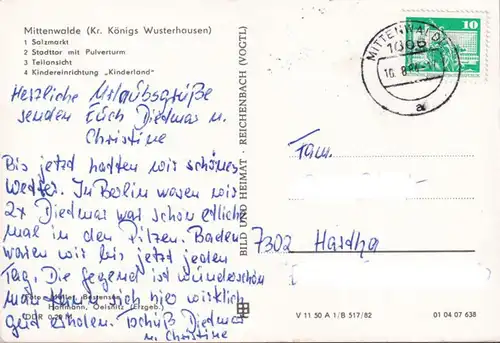 Mittenwalde (Kr. Königs Wusterhausen)
1 Salzmarkt
2 Stadttor mit Pulverturm
3 Teilansicht
4 Kindereinrichtung „Kinderland"
Herzliche Urlaubsgrüße
senden Euch Diedmar u.
Christine
Bis jetzt hatten wir schönes
Wetter. In Berlin waren wir
2x Diedmar war schon etlich
mal in den Pilzen. Baden
waren wir bis jetzt jeden
Tag. Die Gegend ist wunderschön
man kann sich hier wirklich
gut erholen. Tschüß Diedmar
u. Christine
Hoffmann, Oelsnitz (Erzgeb.)
DDR 0,20 M
BILD UND HEIMAT · REICHENBACH (VOGTL)
MITTENWALDE
1606
10. 8.
a
10
Fam.
7302 Hartha
V 11 50 A 1/B 517/82
01 04 07 638